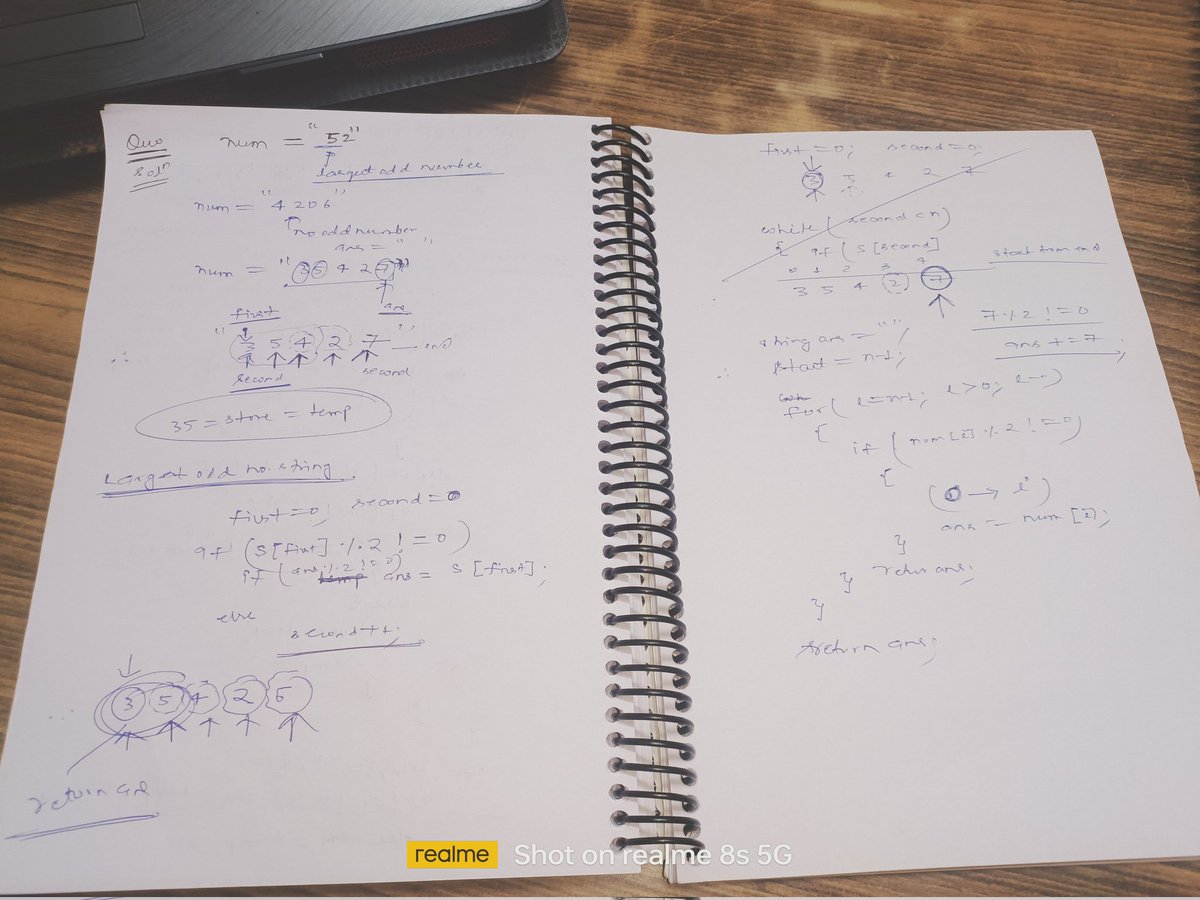 Que
Soln
num = "52"
largest odd number
num = "4206"
no odd number
ans = ""
num = "35427"
ans
first
"35427" end
second second
35 = store = temp
Largest odd no. string
first = 0; second = 0
if (S[first] % 2 != 0)
if (ans % 2 != 0) ans = S[first];
else
second++;
3 5 4 2 6
return ans
first = 0; second = 0;
3 5 4 2 7
while (second < n)
{ if (S[second]
start from end
0 1 2 3 4
3 5 4 2 7
7 % 2 != 0
string ans = "";
ans += 7;
start = n-1;
for (i = n-1; i > 0; i--)
{
if (num[i] % 2 != 0)
{
(0 → i)
ans = num[i];
}
} return ans;
}
return ans;
realme Shot on realme 8s 5G